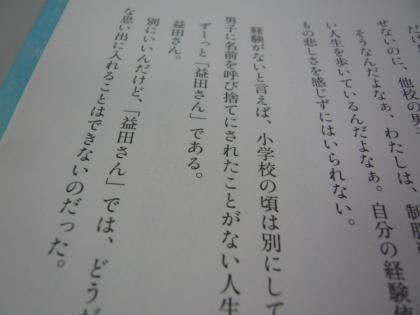 たい
せないのに、他校の男
そうなんだよなぁ、わたしは、制服
い人生を歩いているんだよなぁ。自分の経験
もの悲しさを感じずにはいられない。
経験がないと言えば、小学校の頃は別にして
男子に名前を呼び捨てにされたことがない人生
ずーっと「益田さん」である。
益田さん。
別にいいんだけど、「益田さん」では、どうが
な思い出に入れることはできないのだった。